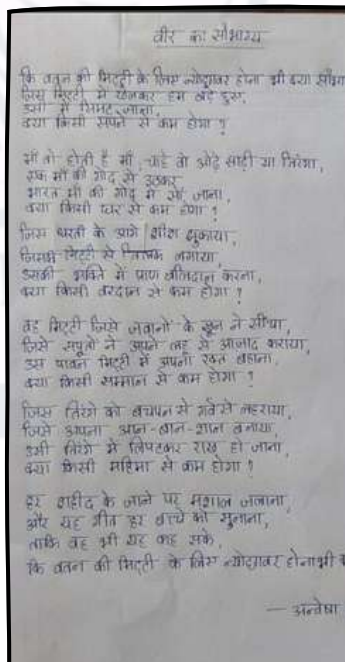 वीर का सौभाग्य
कि वतन की मिट्टी के लिए न्योछावर होना भी क्या
जिस मिट्टी में खेलकर हम बड़े हुए,
उसी में सिमट जाना,
क्या किसी सपने से कम होगा ?
माँ तो होती है माँ, चाहे वो ओढ़े साड़ी या तिरंगा,
एक माँ की गोद से उठकर
भारत माँ की गोद में सो जाना,
क्या किसी वर से कम होगा ?
जिस धरती के आगे शीश झुकाया,
जिसकी मिट्टी से तिलक लगाया,
उसकी भक्ति में प्राण बलिदान करना,
क्या किसी वरदान से कम होगा ?
वह मिट्टी जिसे जवानों के खून ने सींचा,
जिसे सपूतों ने अपने लहू से आजाद कराया,
उस पावन मिट्टी में अपना रक्त बहाना,
क्या किसी सम्मान से कम होगा ?
जिस तिरंगे को बचपन से गर्व से लहराया,
जिसे अपना आन-बान-शान बनाया,
उसी तिरंगे में लिपटकर राख हो जाना,
क्या किसी महिमा से कम होगा ?
हर शहीद के जाने पर मशाल जलाना,
और यह गीत हर बच्चे को सुनाना,
ताकि वह भी यह कह सके,
कि वतन की मिट्टी के लिए न्योछावर होना भी
— अन्वेषा